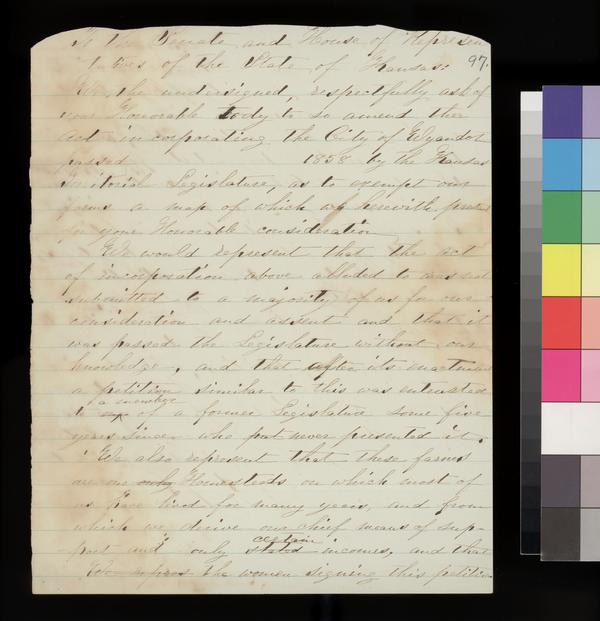 To the Senate and House of Represen
tatives of the State of Kansas: 97.
We, the undersigned, respectfully ask of
your Honorable body to so amend the
act incorporating the City of Wyandot
passed 1858 by the Kansas
Territorial Legislature, as to exempt our
farms a map of which we herewith present
for your Honorable consideration
We would represent that the act
of incorporation above alluded to was not
submitted to a majority of us for our
consideration and assent and that it
was passed the Legislature without our
knowledge, and that after its enactment
a petition similar to this was entrusted
a member
to of a former Legislature some five
years since who never presented it.
We also represent that these farms
are our only Homesteads on which most of
us have lived for many years, and from
which we derive our chief means of sup-
certain
port and only stated incomes, and that
We the women signing this petition